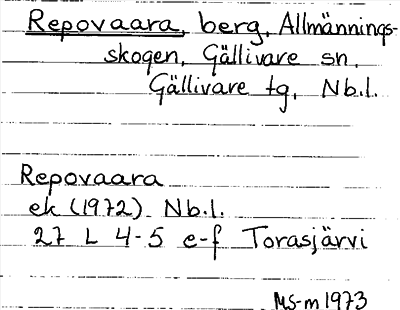 Repovaara, berg, Allmännings-
skogen, Gällivare sn,
Gällivare tg, Nb.l.
Repovaara
ek (1972) Nb.l.
27 L 4-5 e-f Torasjärvi
MS-m 1973